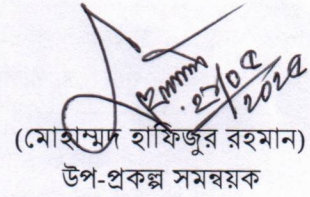 ২৭/০৫
২০২৫
(মোহাম্মদ হাফিজুর রহমান)
উপ-প্রকল্প সমন্বয়ক